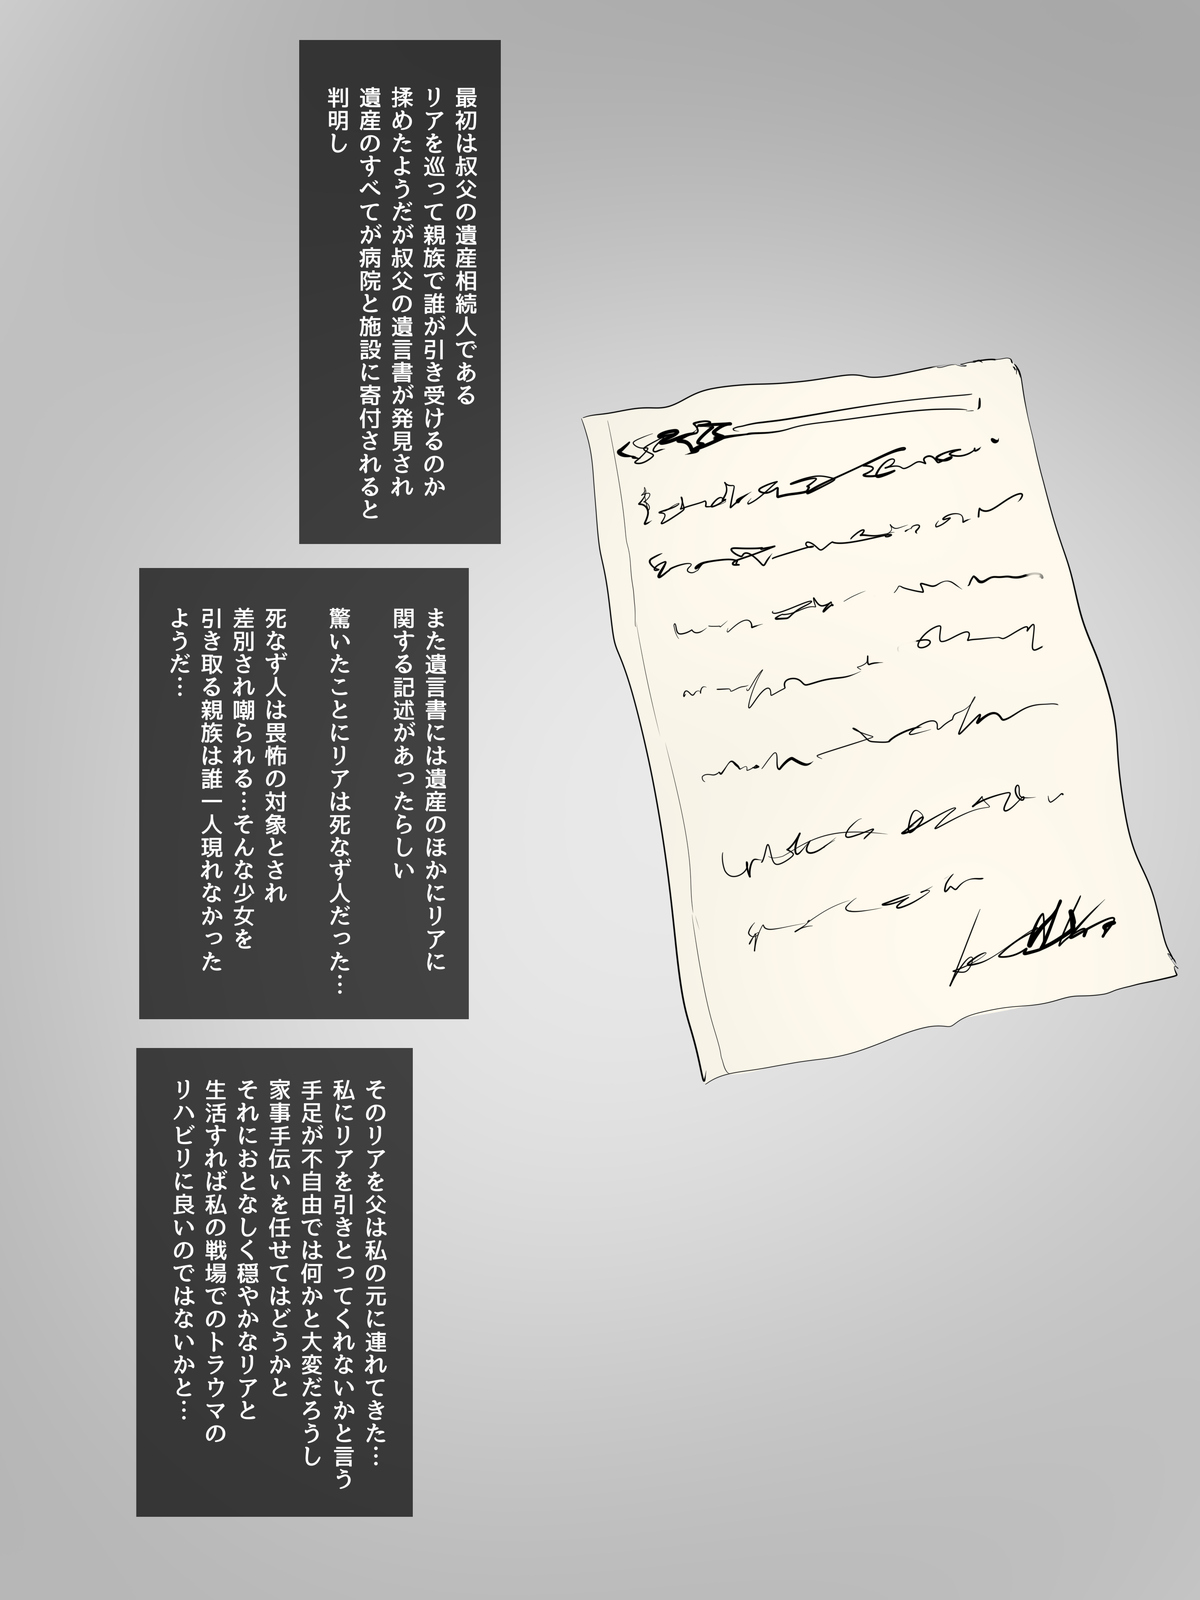 最初は叔父の遺産相続人である
リアを巡って親族で誰が引き受けるのか
揉めたようだが叔父の遺言書が発見され
遺産のすべてが病院と施設に寄付されると
判明し
また遺言書には遺産のほかにリアに
関する記述があったらしい
驚いたことにリアは死なず人だった…
死なず人は畏怖の対象とされ
差別され嘲られる…そんな少女を
引き取る親族は誰一人現れなかった
ようだ…
そのリアを父は私の元に連れてきた…
私にリアを引きとってくれないかと言う
手足が不自由では何かと大変だろうし
家事手伝いを任せてはどうかと
それにおとなしく穏やかなリアと
生活すれば私の戦場でのトラウマの
リハビリに良いのではないかと…